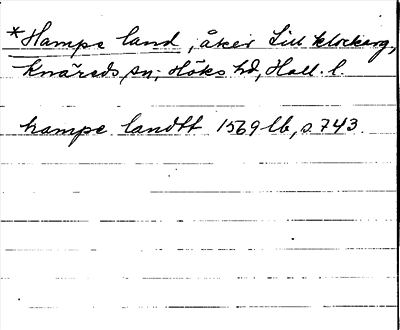 *Hampe land, åker till klockarg,
Knäreds sn, Höks hd, Hall. l.
hampe landtt 1569 lb, s. 743.